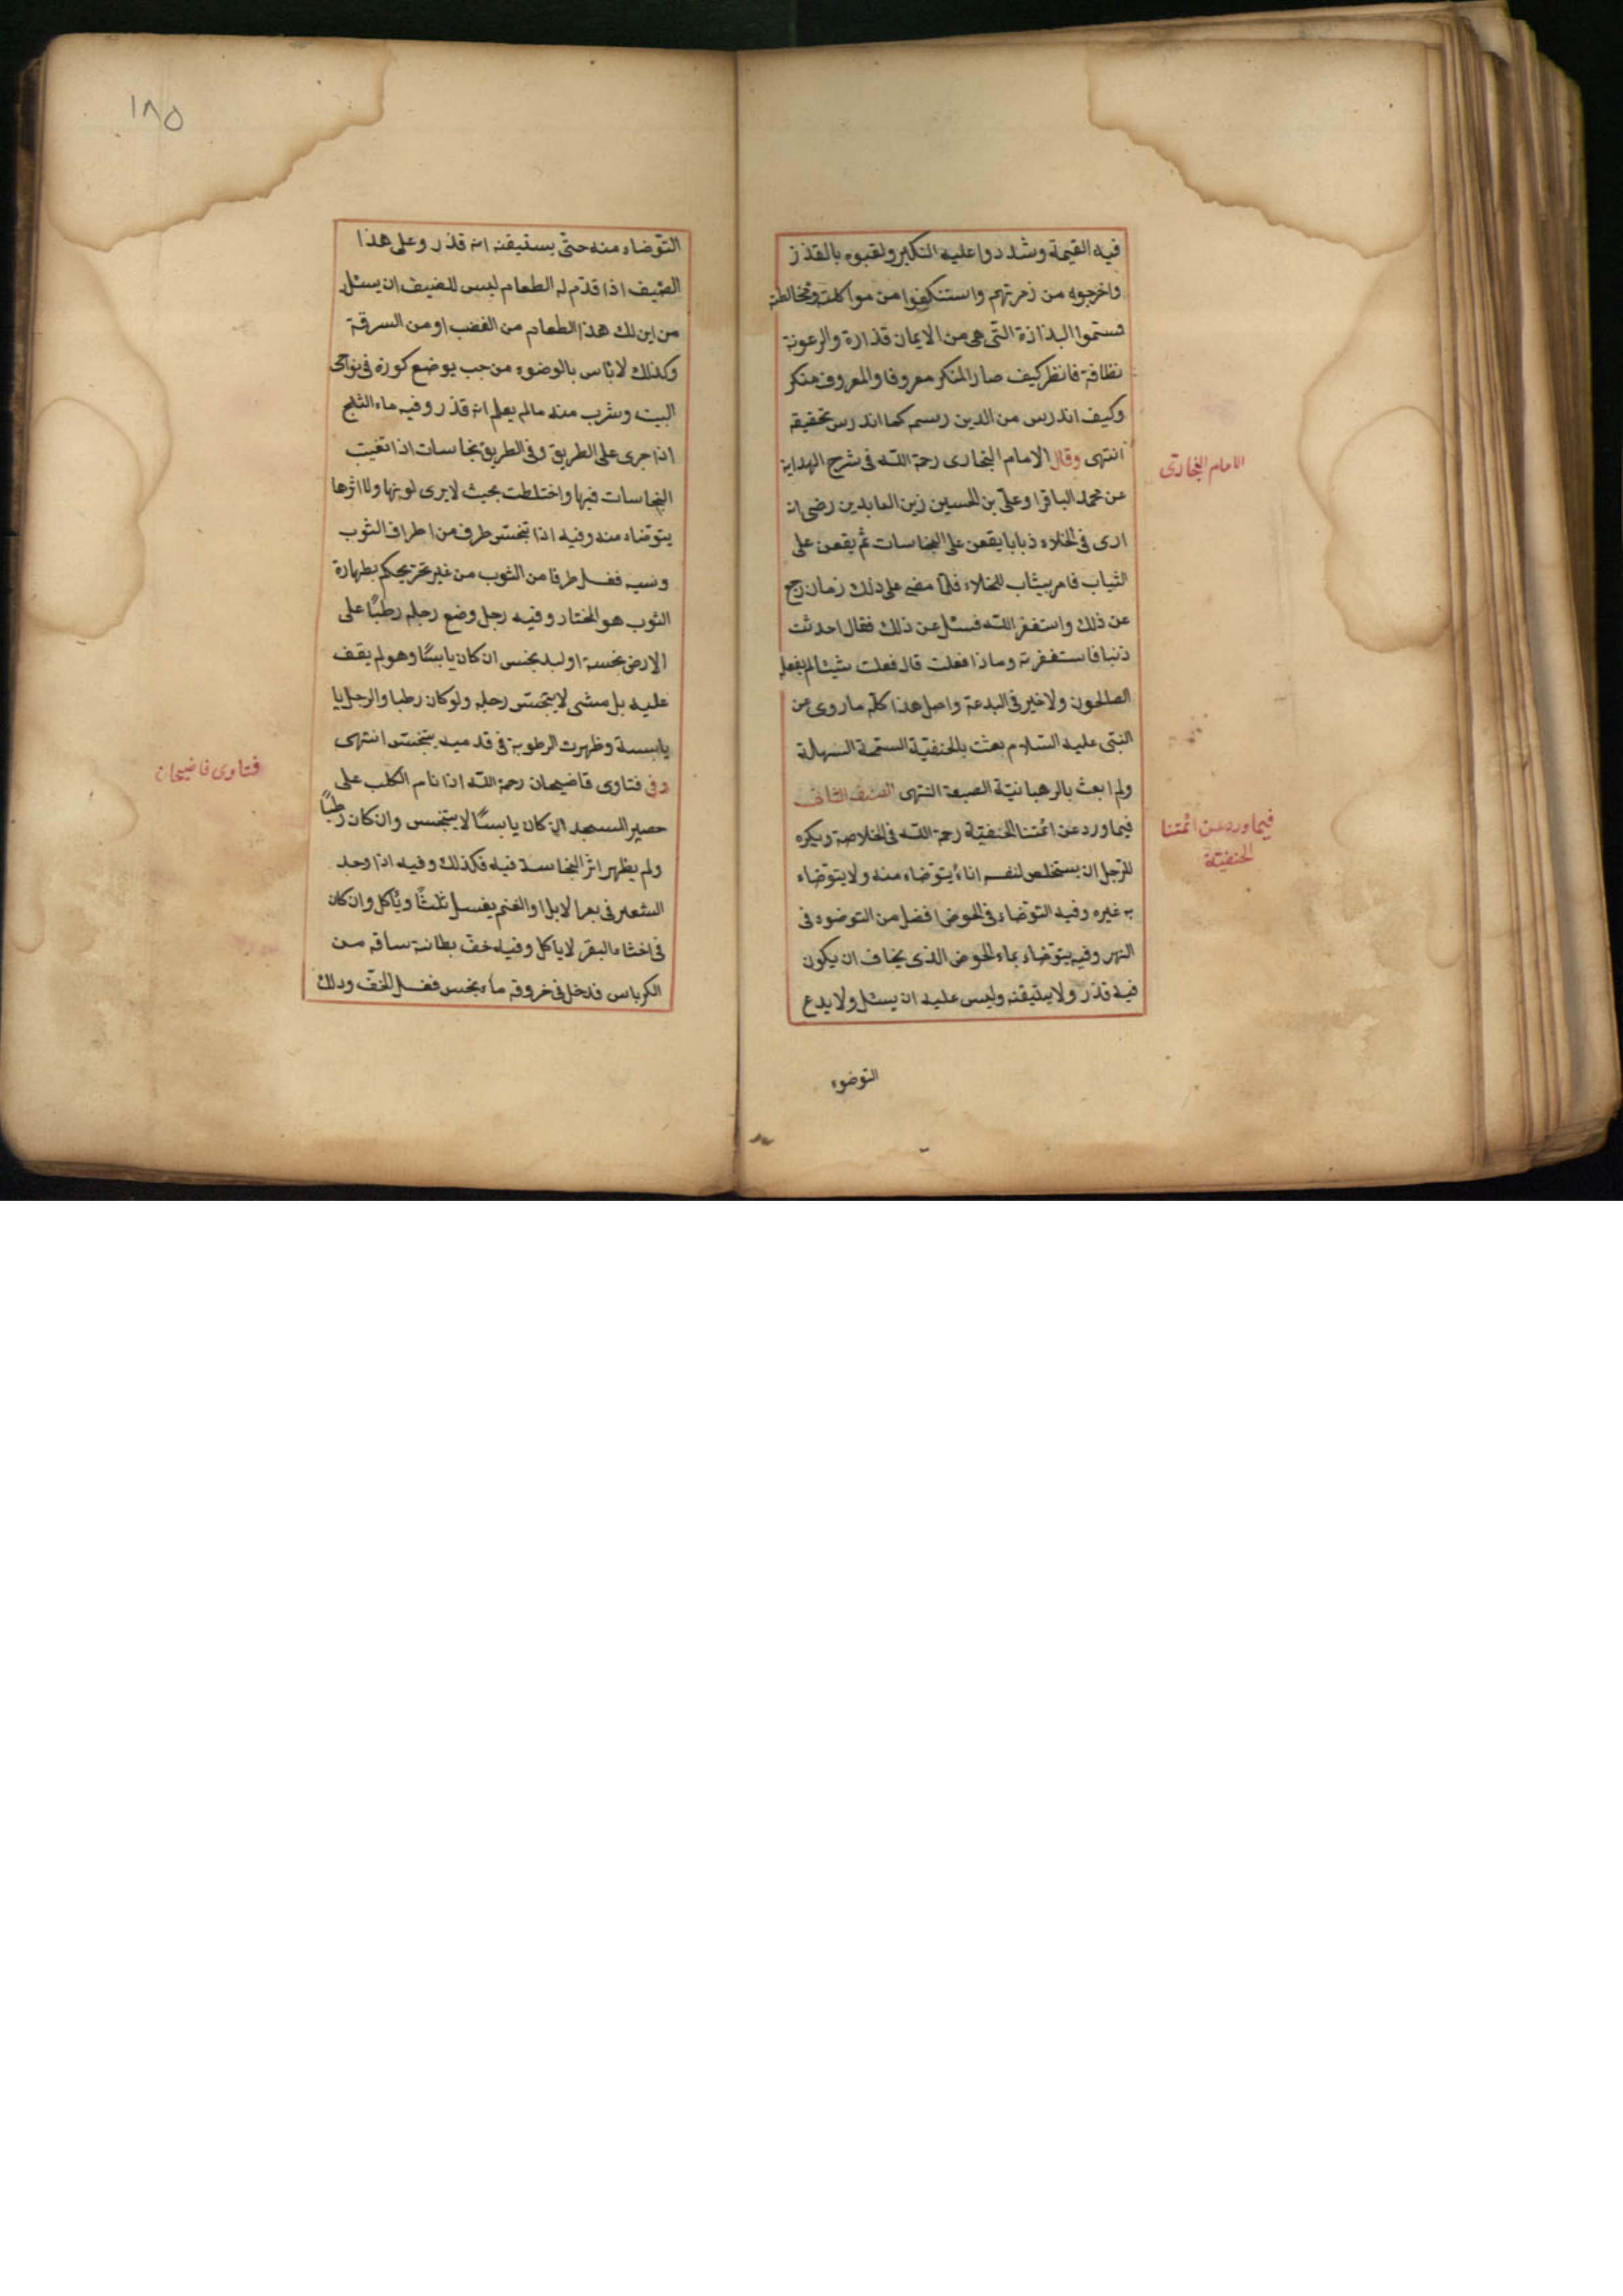 فيه القيمة وشددوا عليه النكير ولقبوه بالقذر
واخرجوه من زمرتهم واستنكفوا من مواكلته ومخالطته
فسموا البذاذة التى هى من الايمان قذارة والرعونة
نظافة فانظر كيف صار المنكر معروفا والمعروف منكر
وكيف اندرس من الدين رسمه كما اندرس تحقيقه
انتهى وقال الامام البخارى رحمة الله فى شرح الهداية
عن محمد الباقر او على بن الحسين زين العابدين رضى انه
ارى فى الخلاء ذبابا يقعن على النجاسات ثم يقعن على
الثياب فامر بيثاب للخلاء فلما مضى على ذلك زمان رجع
عن ذلك واستغفر الله فسئل عن ذلك فقال احدثت
ذنبا فاستغفرته وماذا فعلت قال فعلت شيئا لم يفعله
الصالحون ولا خير فى البدعة واصل هذا كله ما روى عن
النبى عليه السلام بعثت بالحنفية السمحة السهلة
ولم ابعث بالرهبانية الصعبة انتهى الصنف الثانى
فيما ورد عن ائمتنا الحنفية رحمة الله فى الخلاصة ويكره
للرجل ان يستخلص لنفسه اناء يتوضاء منه ولا يتوضاء
به غيره وفيه التوضاء فى الحوض افضل من التوضوء فى
النهر وفيه يتوضاء بماء الحوض الذى يخاف ان يكون
فيه قذر ولا يستيقنه وليس عليه ان يسئل ولا يدع
التوضوء
الامام البخارى
فيما ورد عن ائمتنا
الحنفية
١٨٥
التوضاء منه حتى يستيقنه انه قذر وعلى هذا
الضيف اذا قدم له الطعام ليس للضيف ان يسئل
من اين لك هذا الطعام من الغضب او من السرقة
وكذلك لا باس بالوضوء من حب يوضع كوزه فى نواحى
البيت وشرب منه ما لم يعلم انه قذر وفيه ماء الثلج
اذا جرى على الطريق وفى الطريق نجاسات اذا تغيب
النجاسات فيها واختلطت بحيث لا يرى لونها ولا اثرها
يتوضاء منه وفيه اذا تنجس طرف من اطراف الثوب
ونسيه فغسل طرفا من الثوب من غير تحر يحكم بطهارة
الثوب هو المختار وفيه رجل وضع رجله رطبًا على
الارض نجسة او لبد نجس ان كان يابسًا وهو لم يقف
عليه بل مشى لا يتنجس رجله ولو كان رطبا والرجل يا
يابسة وظهرت الرطوبة فى قدميه يتنجس انتهى
وفى فتاوى قاضيحان رحمة الله اذا نام الكلب على
حصير المسجد ان كان يابسًا لا يتنجس وان كان رطبًا
ولم يظهر اثر النجاسة فيه فكذلك وفيه اذا وجد
الشعير فى بعر الابل او الغنم يغسل ثلثًا ويؤكل وان كان
فى اخثاء البقر لا ياكل وفيه خف بطانة ساقه من
الكرباس فدخل فى خروقه ماء نجس فغسل الخف ودلك
فتاوى قاضيحان